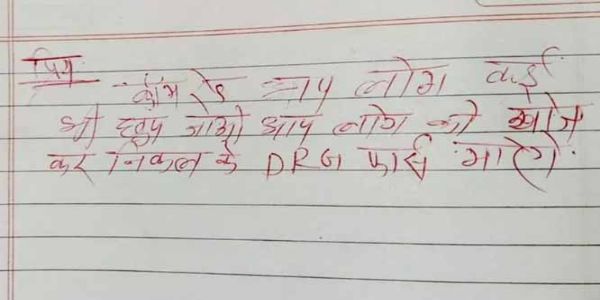 प्रिय
कॉमरेड आप लोग कई
भी छुप जाओ आप लोग को खोज
कर निकल के DRG फोर्स मारेंगे.